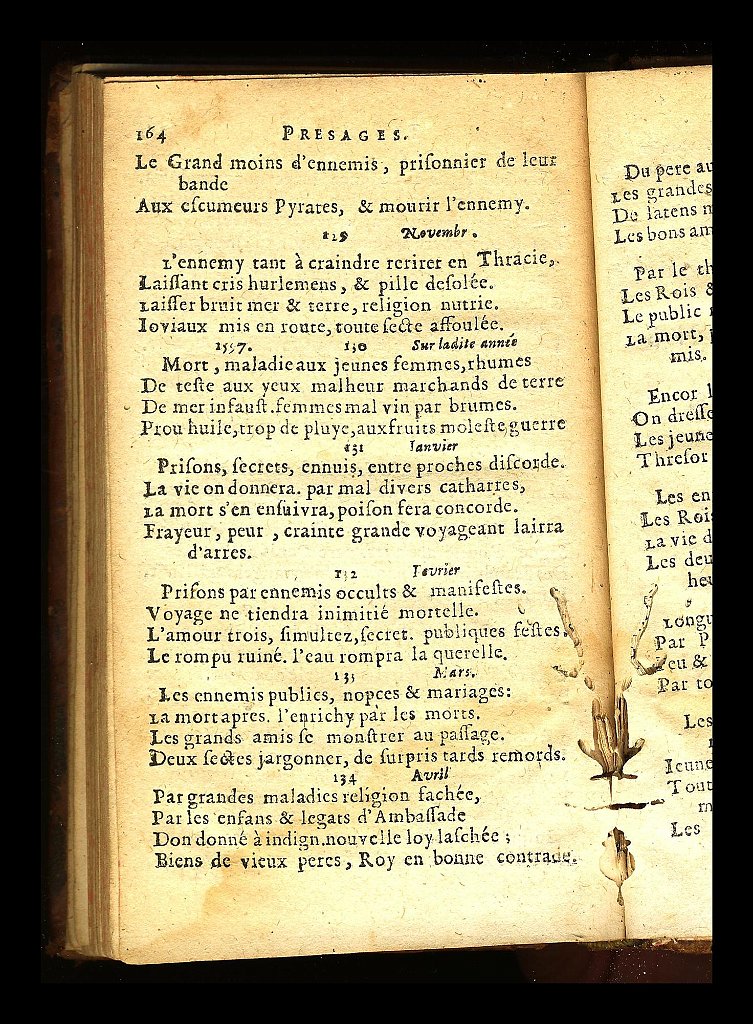 164 PRESAGES.
Le Grand moins d'ennemis, prisonnier de leur
bande
Aux escumeurs Pyrates, & mourir l'ennemy.
129 Novembr.
L'ennemy tant à craindre retirer en Thracie,
Laissant cris hurlemens, & pille desolée.
Laisser bruit mer & terre, religion nutrie.
Ioviaux mis en route, toute secte affoulée.
1557. 130 Sur ladite année
Mort, maladie aux jeunes femmes, rhumes
De teste aux yeux malheur marchands de terre
De mer infaust. femmes mal vin par brumes.
Prou huile, trop de pluye, aux fruits moleste, guerre
131 Ianvier
Prisons, secrets, ennuis, entre proches discorde.
La vie on donnera. par mal divers catharres,
La mort s'en ensuivra, poison fera concorde.
Frayeur, peur, crainte grande voyageant lairra
d'arres.
132 Fevrier
Prisons par ennemis occults & manifestes.
Voyage ne tiendra inimitié mortelle.
L'amour trois, simultez, secret. publiques festes.
Le rompu ruiné. l'eau rompra la querelle.
133 Mars.
Les ennemis publics, nopces & mariages:
La mort apres. l'enrichy par les morts.
Les grands amis se monstrer au passage.
Deux sectes jargonner, de surpris tards remords.
134 Avril
Par grandes maladies religion fachée,
Par les enfans & legats d'Ambassade
Don donné à indign. nouvelle loy laschée;
Biens de vieux peres, Roy en bonne contrade.
Du pere
Les grandes
De latens
Les bons am
Par le th
Les Rois &
Le public
La mort,
mis.
Encor
On dresse
Les jeune
Thresor
Les en
Les Rois
La vie d
Les deu
heu
Longu
Par P
Feu &
Par to
Les
Ieune
Tout
Les